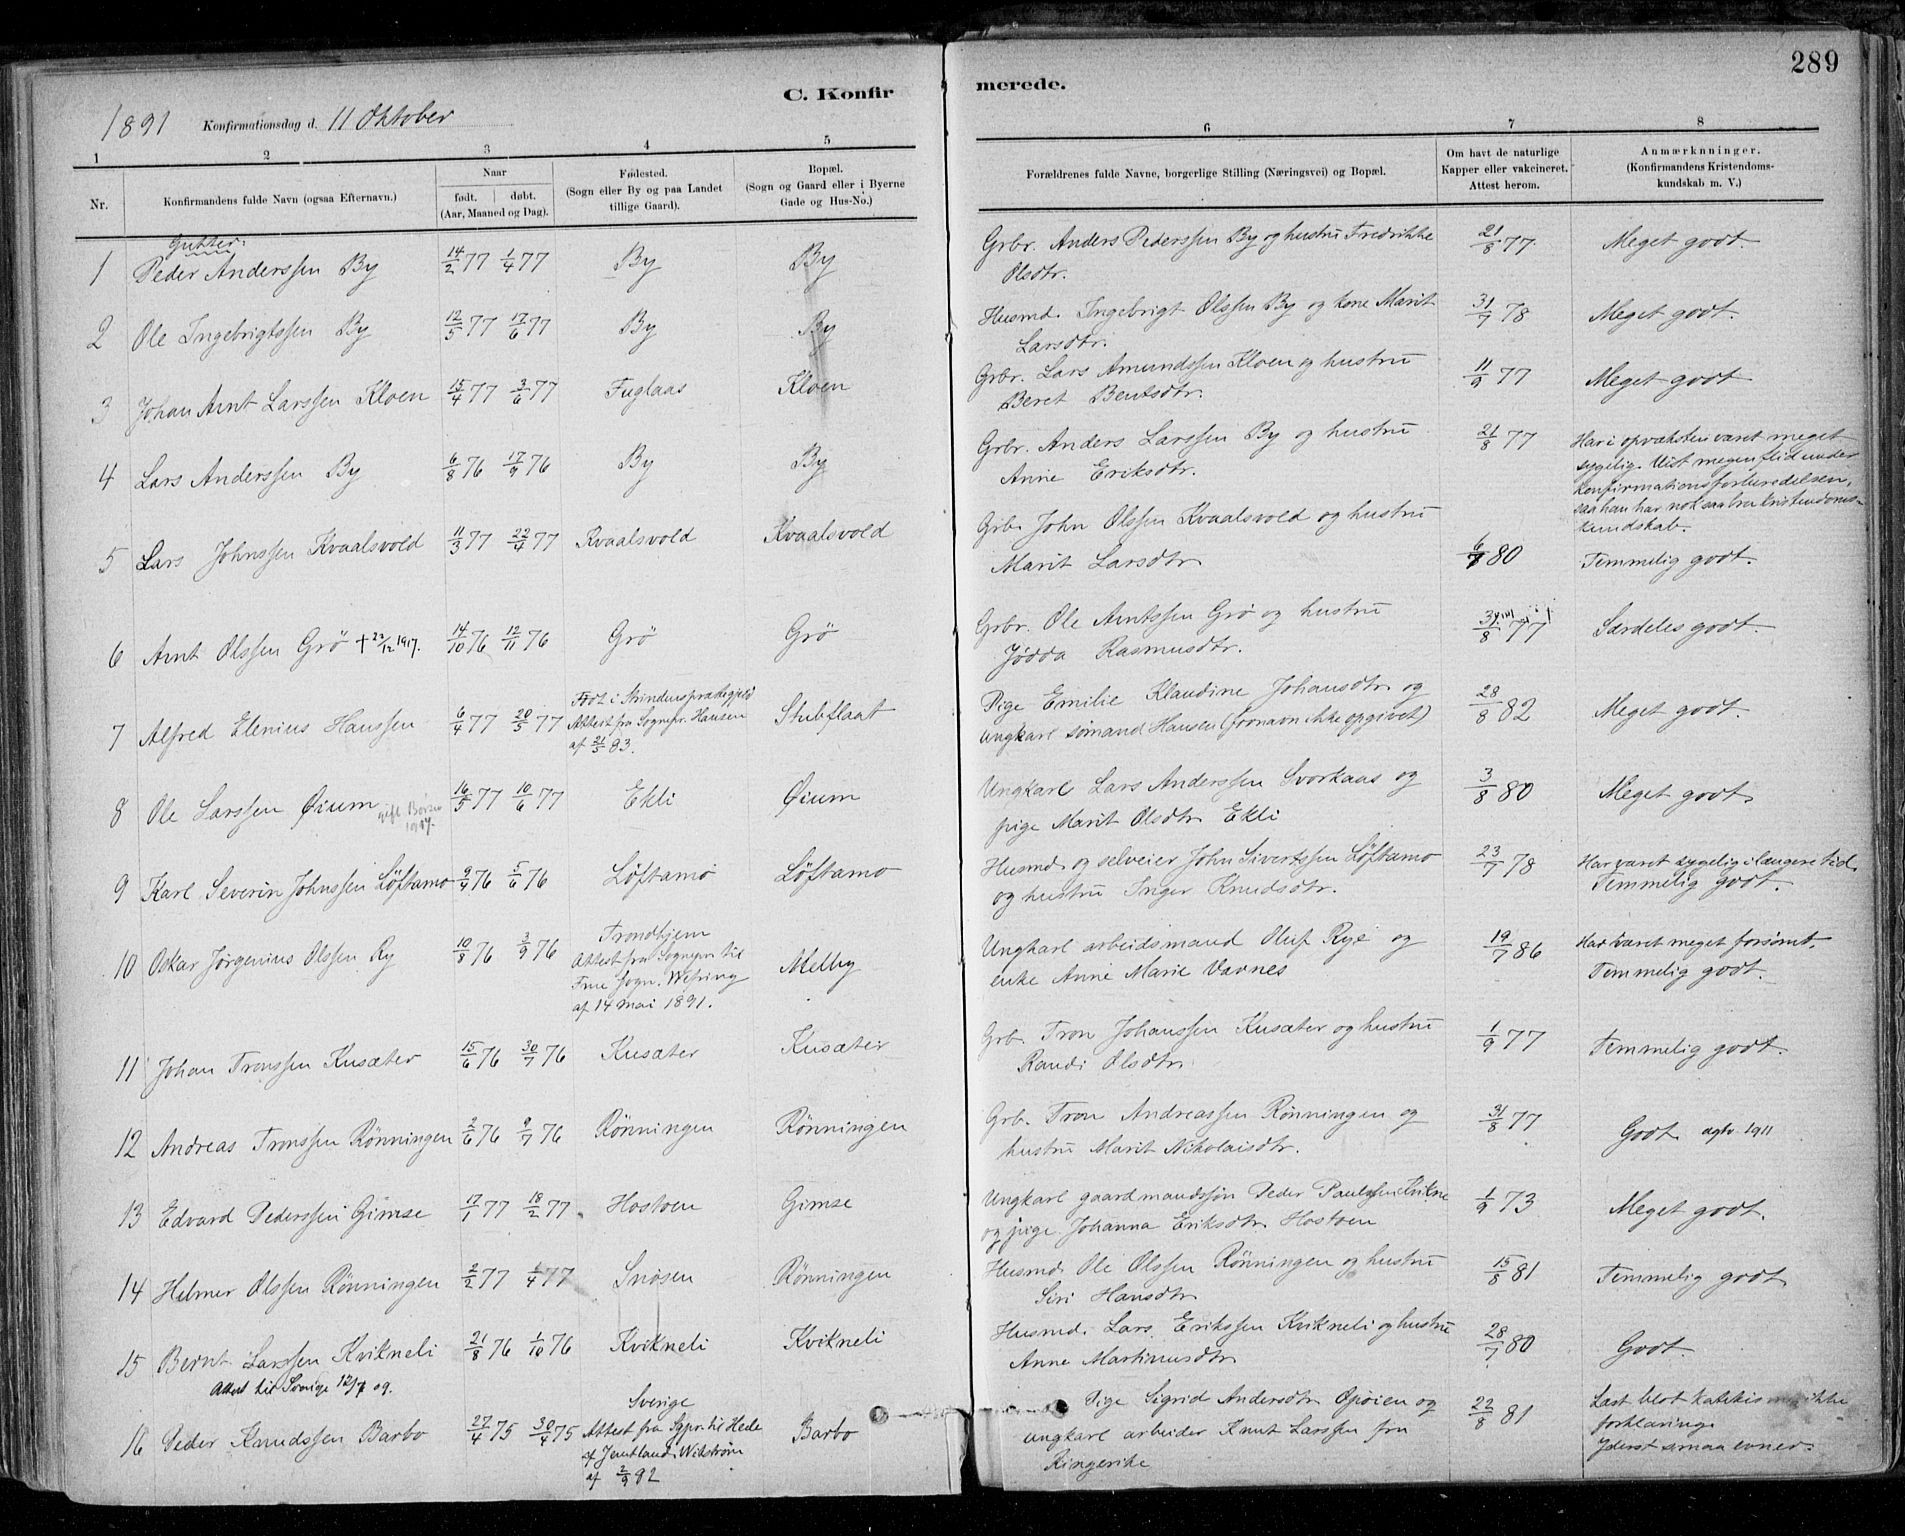 289
C. Konfirmerede.
1891 Konfirmationsdag d. 11 Oktober
1 2 3 4 5 6 7 8
Nr.
Konfirmandens fulde Navn (ogsaa Efternavn.)
Naar
født. døbt.
(Aar, Maaned og Dag).
Fødested.
(Sogn eller By og paa Landet
tillige Gaard).
Bopæl.
(Sogn og Gaard eller i Byerne
Gade og Hus-No.)
Forældrenes fulde Navne, borgerlige Stilling (Næringsvei) og Bopæl.
Om havt de naturlige
Kapper eller vakcineret.
Attest herom.
Anmærkninger.
(Konfirmandens Kristendoms-
kundskab m. V.)
Gutter.
1 Peder Anderssen By 14/2 77 1/4 77 By By Grbr. Anders Pederssen By og hustru Fredrikke 21/8 77. Meget godt.
Olsdtr.
2 Ole Ingebrigtssen By 12/5 77 17/6 77 By By Husmd. Ingebrigt Olssen By og kone Marit 31/7 78 Meget godt.
Larsdtr.
3 Johan Arnt Larssen Kloen 15/4 77 3/6 77 Fuglaas Kloen Grbr. Lars Amundssen Kloen og hustru 11/9 77 Meget godt
Beret Bentsdtr.
4 Lars Anderssen By 6/8 76 17/9 76 By By Grbr. Anders Larssen By og hustru 21/8 77 Har i opvæksten været meget
Anne Eriksdtr. sygelig. Vist megen flid under
konfirmationsforberedelsen,
saa han har nok saa bra kristendoms-
kundskab.
5 Lars Johnssen Kvaalsvold 11/3 77 22/4 77 Kvaalsvold Kvaalsvold Grb. John Olssen Kvaalsvold og hustru
Marit Larsdtr. 80 Temmelig godt.
6 Arnt Olssen Grö + 22/12 1917. 14/10 76 12/11 76 Grö Grö Grbr. Ole Arntssen Grö og hustru 77 Særdeles godt.
Jødda Rasmusdtr.
7 Alfred Elenius Hanssen 6/4 77 20/5 77 Født i Strindens præstegjeld Stubflaat Pige Emilie Klaudine Johansdtr. og 28/8 82 Meget godt.
Attest fra Sognepr. Hansen ungkarl sømand Hansen (fornavn ikke opgivet)
af 21/5 83.
8 Ole Larssen Øium gift Børsen 1917. 16/5 77 10/6 77 Ekli Øium Ungkarl Lars Anderssen Svorkaas og 3/8 80 Meget godt.
pige Marit Olsdtr. Ekli
9 Karl Severin Johnssen Löftamo 9/4 76 5/6 76 Löftamo Löftamo Husmd. og selveier John Sivertssen Löftamo 23/7 78 Har været sygelig i længere tid.
og hustru Inger Knudsdtr. Temmelig godt.
10 Oskar Jørgenius Olssen Ry 10/8 76 3/9 76 Trondhjem Melby Ungkarl arbeidsmand Oluf Rye og 19/7 86 Har været meget forsømt.
Attest fra Sognepr. til enke Anne Marie Varnes Temmelig godt.
Frue Sogn. Wexring
af 14 mai 1891.
11 Johan Tronssen Kusæter 15/6 76 30/7 76 Kusæter Kusæter Grb. Tron Johanssen Kusæter og hustru 1/9 77 Temmelig godt.
Randi Olsdtr.
12 Andreas Tronssen Rönningen 2/6 76 9/7 76 Rönningen Rönningen Grb. Tron Andreassen Rönningen og 31/8 77 Godt. 1911
hustru Marit Nikolaisdtr.
13 Edvard Pederssen Gimse 17/1 77 18/2 77. Hostoen Gimse Ungkarl gaardmandssøn Peder Paulssen Kvikne 1/9 73 Meget godt.
og pige Johanna Eriksdtr. Hostoen
14 Helmer Olssen Rönningen 2/2 77 1/4 77 Snösen Rönningen Husmd. Ole Olssen Rönningen og hustru 15/8 81 Temmelig godt
Siri Hansdtr.
15 Bernt Larssen Kvikneli 21/8 76 1/10 76 Kvikneli Kvikneli Husmd. Lars Erikssen Kvikneli og hustru 28/7 80 Godt.
Attest til Sverige 12/7 09. Anne Martinusdtr.
16 Peder Knudssen Barbo 27/4 75 30/4 75 Sverige Barbo Pige Sigrid Andersdtr. Opöien og 22/8 81 Læst blot katekismus ikke
Attest fra Sgpr. til Hede ungkarl arbeider Knut Larssen fra forklaring.
af Jemtland, Wikström Ringerike Yderst smaa evner.
af 2/9 82